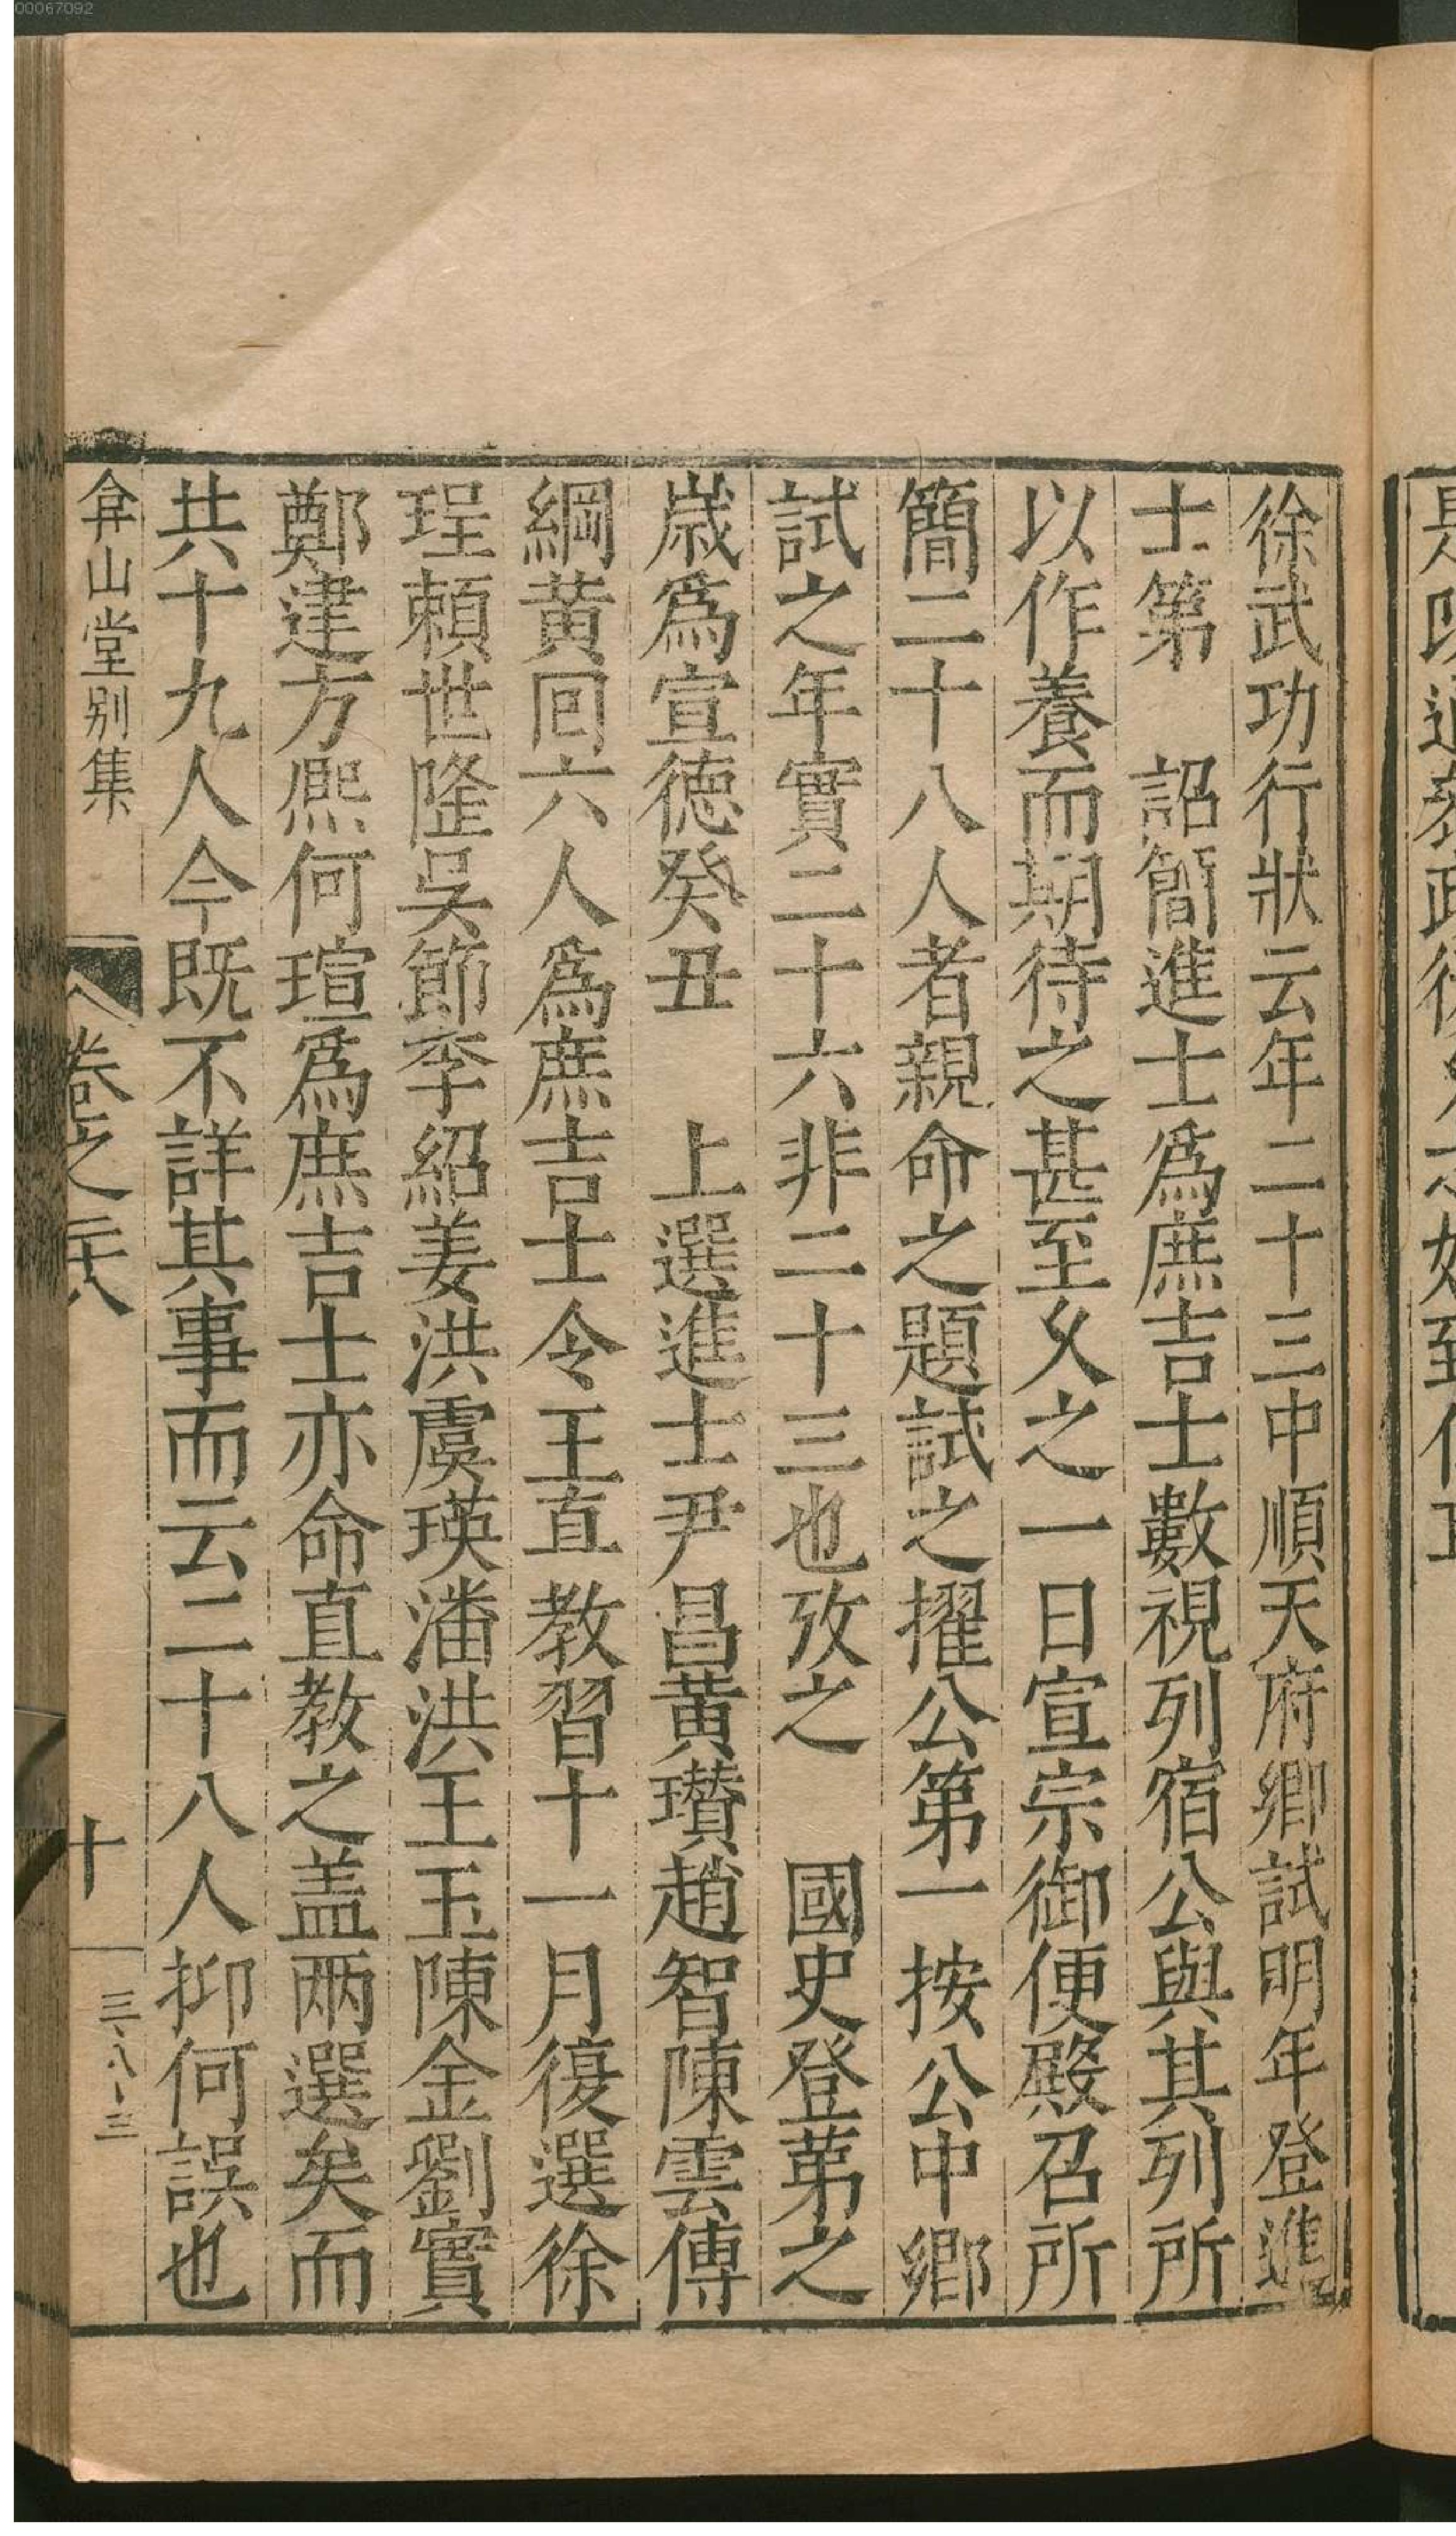 00067092
徐武功行狀云年二十三中順天府鄉試明年登進
士第　詔簡進士爲庶吉士數視列宿公與其列所
以作養而期待之甚至乆之一日宣宗御便殿召所
簡二十八人者親命之題試之擢公第一按公中鄉
試之年實二十六非二十三也攷之　國史登第之
歲爲宣德癸丑　上選進士尹昌黃瓚趙智陳雲傅
綱黃回六人爲庶吉士令王直教習十一月復選徐
珵賴世隆吳節李紹姜洪虞瑛潘洪王玉陳金劉實
鄭建方熙何瑄爲庶吉士亦命直教之盖兩選矣而
共十九人今既不詳其事而云二十八人抑何誤也
弇山堂别集
卷之二十八
十
三、八、三